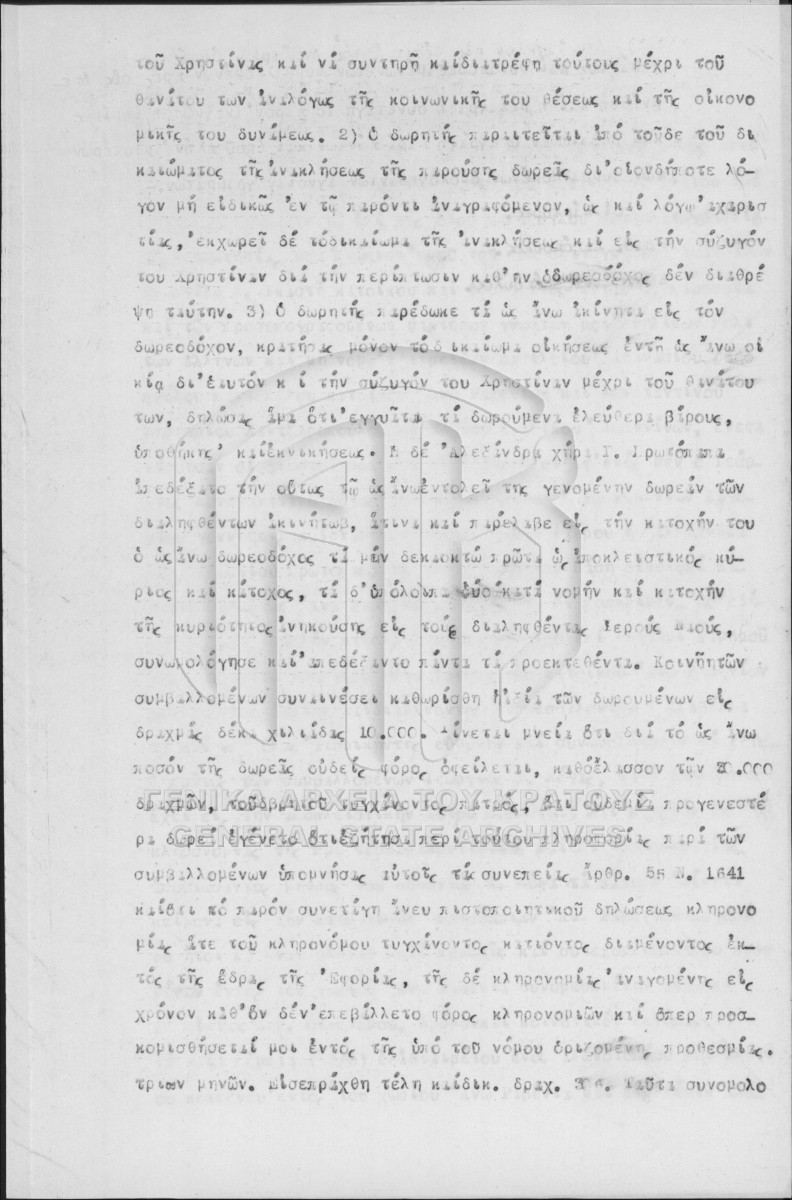 τοῦ Χρηστίνας καί νά συντηρῇ καίδιατρέφῃ τούτους μέχρι τοῦ
θανάτου των ἀναλόγως τῆς κοινωνικῆς του θέσεως καί τῆς οἰκονο
μικῆς του δυνάμεως. 2) Ὁ δωρητής παραιτεῖται ἀπό τοῦδε τοῦ δι
καιώματος τῆς ἀνακλήσεως τῆς παρούσης δωρεᾶς δι'οἱονδήποτε λό-
γον μή εἰδικῶς ἐν τῷ παρόντι ἀναγραφόμενον, ὡς καί λόγῳ ἀχαρισ
τίας, ἐκχωρεῖ δέ τόδικαίωμα τῆς ἀνακλήσεως καί εἰς τήν σύζυγόν
του Χρηστίναν διά τήν περίπτωσιν καθ'ἥν ὁδωρεοδόχος δέν διαθρέ
ψῃ ταύτην. 3) Ὁ δωρητής παρέδωκε τά ὡς ἄνω ἀκίνητα εἰς τόν
δωρεοδόχον, κρατήσας μόνον τόδικαίωμα οἰκήσεως ἐντῇ ὡς ἄνω οἰ
κίᾳ δι'ἑαυτόν κ ί τήν σύζυγόν του Χρηστίναν μέχρι τοῦ θανάτου
των, δηλώσας ἅμα ὅτι ἐγγυᾶται τά δωρούμενα ἐλεύθερα βάρους,
ὑποθήκης καίἐκνικήσεως. Η δέ Ἀλεξάνδρα χήρα Γ. Πρωτόπαπα
ἀπεδέξατο τήν οὕτως τῷ ὡςἄνωἐντολεῖ της γενομένην δωρεάν τῶν
διαληφθέντων ἀκινήτωβ, ἅτινα καί παρέλαβε εἰς τήν κατοχήν του
ὁ ὡςἄνω δωρεοδόχος τά μέν δεκαοκτώ πρῶτα ὡς ἀποκλειστικός κύ-
ριος καί κάτοχος, τά δ'ὑπόλοιπα δύο κατά νομήν καί κατοχήν
τῆς κυριότητος ἀνηκούσης εἰς τούς διαληφθέντας Ἱερούς Ναούς,
συνωμολόγησε καί ἀπεδέξαντο πάντα τά προεκτεθέντα. Κοινῇτῶν
συμβαλλομένων συναινέσει καθωρίσθη ἡἀξία τῶν δωρουμένων εἰς
δραχμάς δέκα χιλιάδας 10.000. Γίνεται μνεία ὅτι διά τό ὡς ἄνω
ποσόν τῆς δωρεᾶς οὐδείς φόρος ὀφείλεται, καθόἔλασσον τῶν 20.000
δραχμῶν, τοῦδωρητοῦ τυγχάνοντος πατρός, ὅτι οὐδεμία προγενεστέ
ρα δωρεά ἐγένετο ὅτιἐζήτησα περί τούτου πληροφορίας παρά τῶν
συμβαλλομένων ὑπομνήσας αὐτοῖς τάςσυνεπείας ἄρθρ. 58 Ν. 1641
καίὅτι τό παρόν συνετάγη ἄνευ πιστοποιητικοῦ δηλώσεως κληρονο
μίας ἅτε τοῦ κληρονόμου τυγχάνοντος κατιόντος διαμένοντος ἐκ-
τός τῆς ἕδρας τῆς Ἐφορίας, τῆς δέ κληρονομίας ἀναγομένης εἰς
χρόνον καθ'ὅν δέν ἐπεβάλλετο φόρος κληρονομιῶν καί ὅπερ προσ-
κομισθήσεταί μοι ἐντός τῆς ὑπό τοῦ νόμου ὁριζομένης προθεσμίας.
τριων μηνῶν. Εἰσεπράχθη τέλη καίδικ. δραχ. Ταῦτα συνομολο
ΓΕΝΙΚΑ ΑΡΧΕΙΑ ΤΟΥ ΚΡΑΤΟΥΣ
GENERAL STATE ARCHIVES